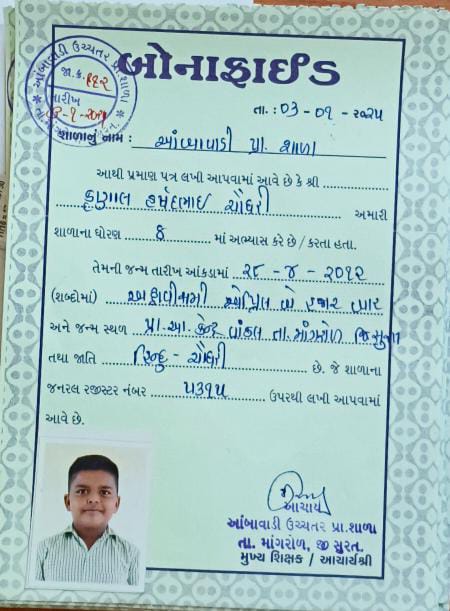 આંબાવાડી ઉચ્ચતર પ્રા.શાળા
જા.ક્ર.
તારીખ
બોનાફાઈડ
તા. : ૦૩ - ૦૧ - ૨૦૨૫
શાળાનું નામ : આંબાવાડી પ્રા. શાળા
આથી પ્રમાણ પત્ર લખી આપવામાં આવે છે કે શ્રી
કૃણાલ ચૌધરી અમારી
શાળાના ધોરણ 8 માં અભ્યાસ કરે છે / કરતા હતા.
તેમની જન્મ તારીખ આંકડામાં ૨૮ - ૪ - ૨૦૧૨
(શબ્દોમાં) અઠ્ઠાવીસમી એપ્રિલ બે હજાર બાર
અને જન્મ સ્થળ પ્રા.આ. કેન્દ્ર વાંકલ તા. માંગરોળ જિ સુરત
તથા જાતિ હિન્દુ - ચૌધરી છે. જે શાળાના
જનરલ રજીસ્ટર નંબર ૫૩૧૫ ઉપરથી લખી આપવામાં
આવે છે.
આચાર્ય
આંબાવાડી ઉચ્ચતર પ્રા.શાળા
તા. માંગરોળ, જી સુરત.
મુખ્ય શિક્ષક / આચાર્યશ્રી